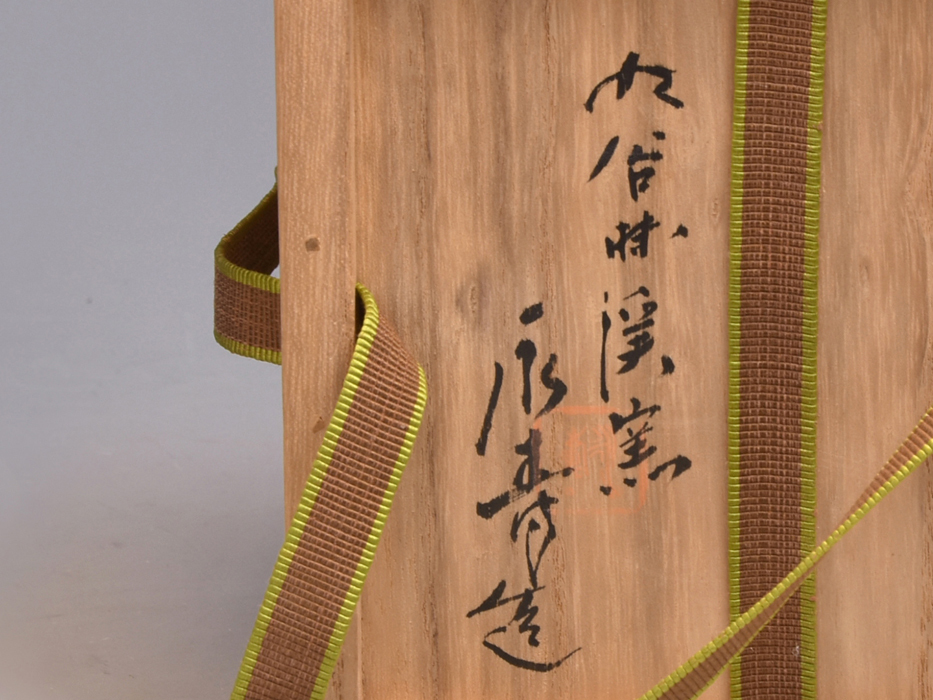 九谷林渓窯
永寿造